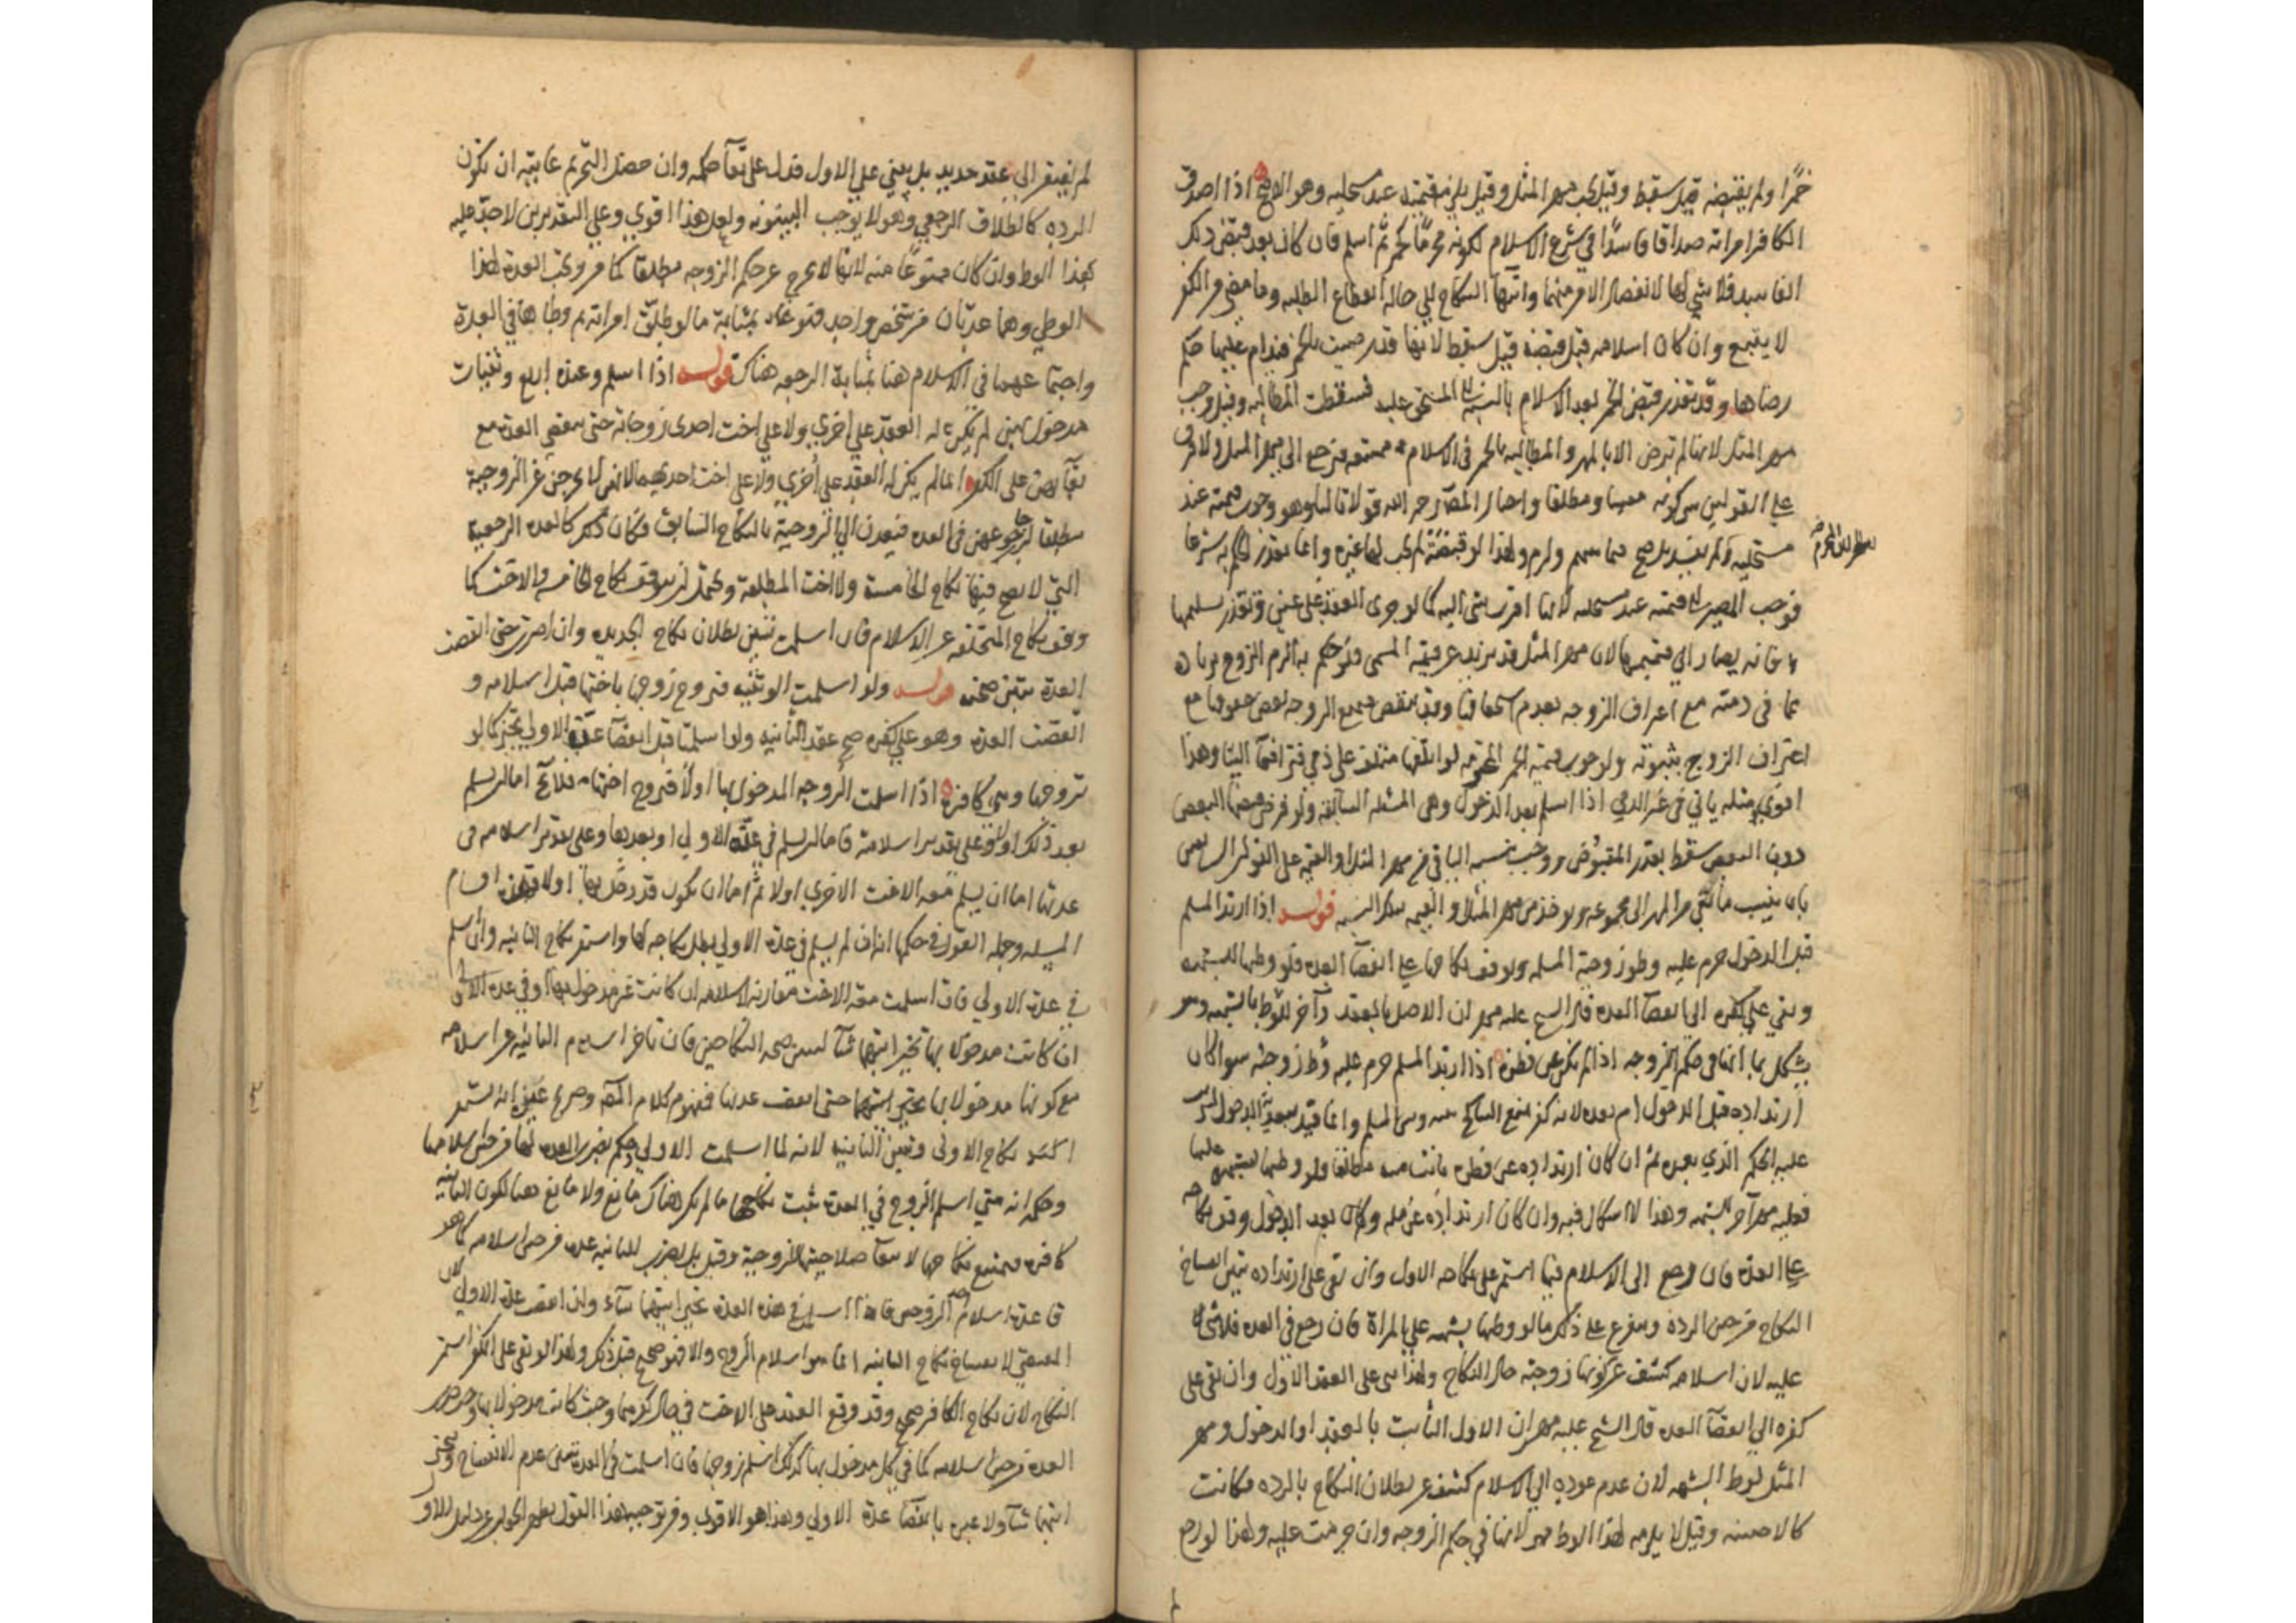 خمرًا ولم يقبضه قيل سقط وقيل يجب مهر المثل وقيل يلزم قيمته عند مستحليه وهو الاصح اذا اصدق
الكافر امراته صداقا فاسدًا في شرع الاسلام لكونه محرمًا كخمر ثم اسلم فان كان بعد قبض ذلك
الفاسد فلا شي لها لانفصال الامر منهما وانتهآ النكاح الي حالة انقطاع الطلبه وما مضي في الكفر
لا يتبع وان كان اسلامه قبل قبضه قيل سقط لانها قد رضيت بالخمر فيدام عليها حكم
رضاها وقد تعذر قبض الخمر بعد الاسلام بالنسبة الي المستحق عليه فسقطت المطالبه وقيل وجب
مهر المثل لانها لم ترض الا بالمهر والمطالبه بالخمر في الاسلام ممتنعه فترجع الى مهر المثل ولا فرق
علي القولين بين كونه معينا ومطلقا واختار المصنف رحمه الله قولا ثالثا وهو وجوب قيمته عند
مستحليه ولم يفسد بل صح فيما بينهم ولزم ولهذا لو قبضته لم يجب لها غيره وانما تعذر الحكم به شرعا
فوجب المصير الي قيمته عند مستحليه لانها اقرب شي اليه كما لو جرى العقد علي عين وتعذر تسليمها
فانه يصار الي قيمتها لان مهر المثل قد يزيد عن قيمة المسمى فلو حكم به الزم الزوج بزياده
عما في ذمته مع اعتراف الزوجه بعدم استحقاقها وقد ينقص فيمنع الزوجه بعض حقوقها مع
اعتراف الزوج بثبوته ولوجوب قيمة الخمر المحترمه لو اتلفها متلف على ذمي فترافعآ الينا وهذا
اقوي ومثله ياتي في غير الذمي اذا اسلم بعد الدخول وهي المسئله السابقه ولو فرض قبضها البعض
دون البعض سقط بقدر المقبوض ووجب بنسبه الباقي من مهر المثل او القيمه على القولين السابقين
بان ينسب ما بقي من المهر الى مجموعه ويوخذ من مهر المثل او القيمه بتلك النسبه قوله اذا ارتد المسلم
قبل الدخول حرم عليه وطو زوجته المسلمه ووقف نكاحها علي انقضآ العده فلو وطيها للشبهه
وبقي علي كفره الى انقضآ العده قال الشيخ عليه مهران الاصل بالعقد وآخر للوطي بالشبهه وهو
يشكل بما انها في حكم الزوجه اذا لم يكن عن فطره اذا ارتد المسلم حرم عليه وطي زوجته سوا كان
ارتداده قبل الدخول ام بعده لانه كفر يمنع التناكح بينه وبين المسلم وانما قيد ببعدية الدخول ليترتب
عليه الحكم الذي بعده ثم ان كان ارتداده عن فطره بانت منه مطلقا فلو وطيها لشبهه عليها
فعليه مهر آخر للشبهه وهذا لا اشكال فيه وان كان ارتداده عن مله وكان بعد الدخول وقف نكاحه
علي العده فان رجع الى الاسلام فيها استمر على نكاحه الاول وان بقي على ارتداده تبين انفساخ
النكاح من حين الرده ويتفرع علي ذلك ما لو وطيها بشبهه علي المراة فان رجع في العده فلا شي لها
عليه لان اسلامه كشف عن كونها زوجته حال النكاح ولهذا بني على العقد الاول وان بقي على
كفره الى انقضآ العده قال الشيخ عليه مهران الاول الثابت بالعقد او الدخول ومهر
المثل لوطي الشبهه لان عدم عوده الى الاسلام كشف عن بطلان النكاح بالرده فكانت
كالاجنبيه وقيل لا يلزمه لهذا الوطي مهر لانها في حكم الزوجه وان حرمت عليه ولهذا لو رجع
لم يفتقر الى عقد جديد بل يبني علي الاول فدل على بقآ حكمه وان حصل التحريم غايته ان تكون
الرده كالطلاق الرجعي وهو لا يوجب البينونه ولعل هذا اقوي وعلي التقديرين لا حد عليه
بهذا الوطي وان كان ممنوعًا منه لانها لا تخرج عن حكم الزوجه مطلقا كما مر وتجب العدة لهذا
الوطي وهما عدتان من شخص واحد فهو بمثابة ما لو طلق امراته ثم وطيها في العدة
واجتماعهما في الاسلام هنا بمثابة الرجعه هناك قوله اذا اسلم وعنده اربع وثنيات
مدخول بهن لم يكن له العقد علي اخري ولا علي اخت احدى زوجاته حتى تنقضي العدة مع
بقآيهن على الكفر انما لم يكن له العقد علي اخري ولا علي اخت احديهما لانهن لم يخرجن عن الزوجية
مطلقا لرجا رجوعهن في العده فيعدن الى الزوجية بالنكاح السابق فكان ذلك كالعده الرجعية
التي لا يصح فيها نكاح الخامسة ولا اخت المطلقة ويحتمل ان يتوقف نكاح الخامسه والاخت كما
وقف نكاح المتخلفه عن الاسلام فان اسلمت تبين بطلان نكاح الجديده وان اصرت حتى انقضت
العدة تبين صحته قوله ولو اسلمت الوثنيه فتزوج زوجها باختها قبل اسلامه و
انقضت العدة وهو علي كفره صح عقد الثانيه ولو اسلمتا قبل انقضآ عدة الاولي تخير كما لو
تزوجها وهي كافره اذا اسلمت الزوجه المدخول بها اولا فتزوج اختها فلا يخ اما ان يسلم
بعد ذلك او لا وعلى تقدير اسلامه فاما ان يسلم في عدة الاولي او بعدها وعلى تقدير اسلامه في
عدتها اما ان يسلم معه الاخت الاخرى اولا ثم اما ان يكون قد دخل بها او لا فهذه اقسام
المسيله وجمله القول في حكمها انه ان لم يسلم في عدة الاولي بطل نكاحه لها واستقر نكاح الثانيه وان اسلم
في عدة الاولي فان اسلمت معه الاخت مقارنه لاسلامه ان كانت غير مدخول بها او في عده الاولى
ان كانت مدخولا بها تخير ايتهما شآ لسبق صحه النكاحين فان تاخر اسلام الثانيه عن اسلامه
مع كونها مدخولا بها تخير ايتهما حتى انقضت عدتها فمفهوم كلام المصنف وصريح غيره انه يستمر
نكاح الاولى وتبين الثانيه لانه لما اسلمت الاولي حكم بضرب العده لها من حين اسلامها
وحكمها انه متي اسلم الزوج في العدة ثبت نكاحها ما لم يكن هناك مانع ولا مانع هنا لكون الثانيه
كافره فيمتنع نكاحها لا سقآ صلاحيتها للزوجية وقيل بل تضرب للثانيه عده من حين اسلامه كما هو
قاعدة اسلام الزوجين فاذا اسلمت في هذه العده تخير ايتهما شآء وان انقضت عدة الاولي لان
المقتضي لانفساخ نكاح الثانيه انما هو اسلام الزوج والا فهو صحيح قبل ذلك ولهذا لو بقي على الكفر استمر
النكاح لان نكاح الكافر صحيح وقد وقع العقد على الاخت في حال كفرهما وحيث كانت مدخولا بها
العده من حين اسلامه كما في كل مدخول بها كذلك اسلم زوجها فان اسلمت في العدة تبين عدم الانفساخ وتخير
ايتهما شآ ولا عبرة بانقضآ عدة الاولي وهذا هو الاقوي ومن توجيه هذا القول يظهر الجواب عن دليل الاول